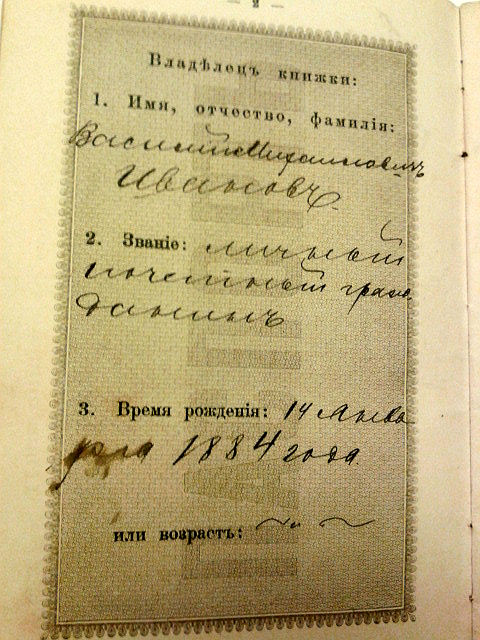 2
Владѣлецъ книжки:
1. Имя, отчество, фамилія:
Василий Михайловичъ
Ивановъ
2. Званіе: личный
почетный граж
данинъ
3. Время рожденія: 14 Янва
ря 1884 года.
или возрастъ: ~ " ~